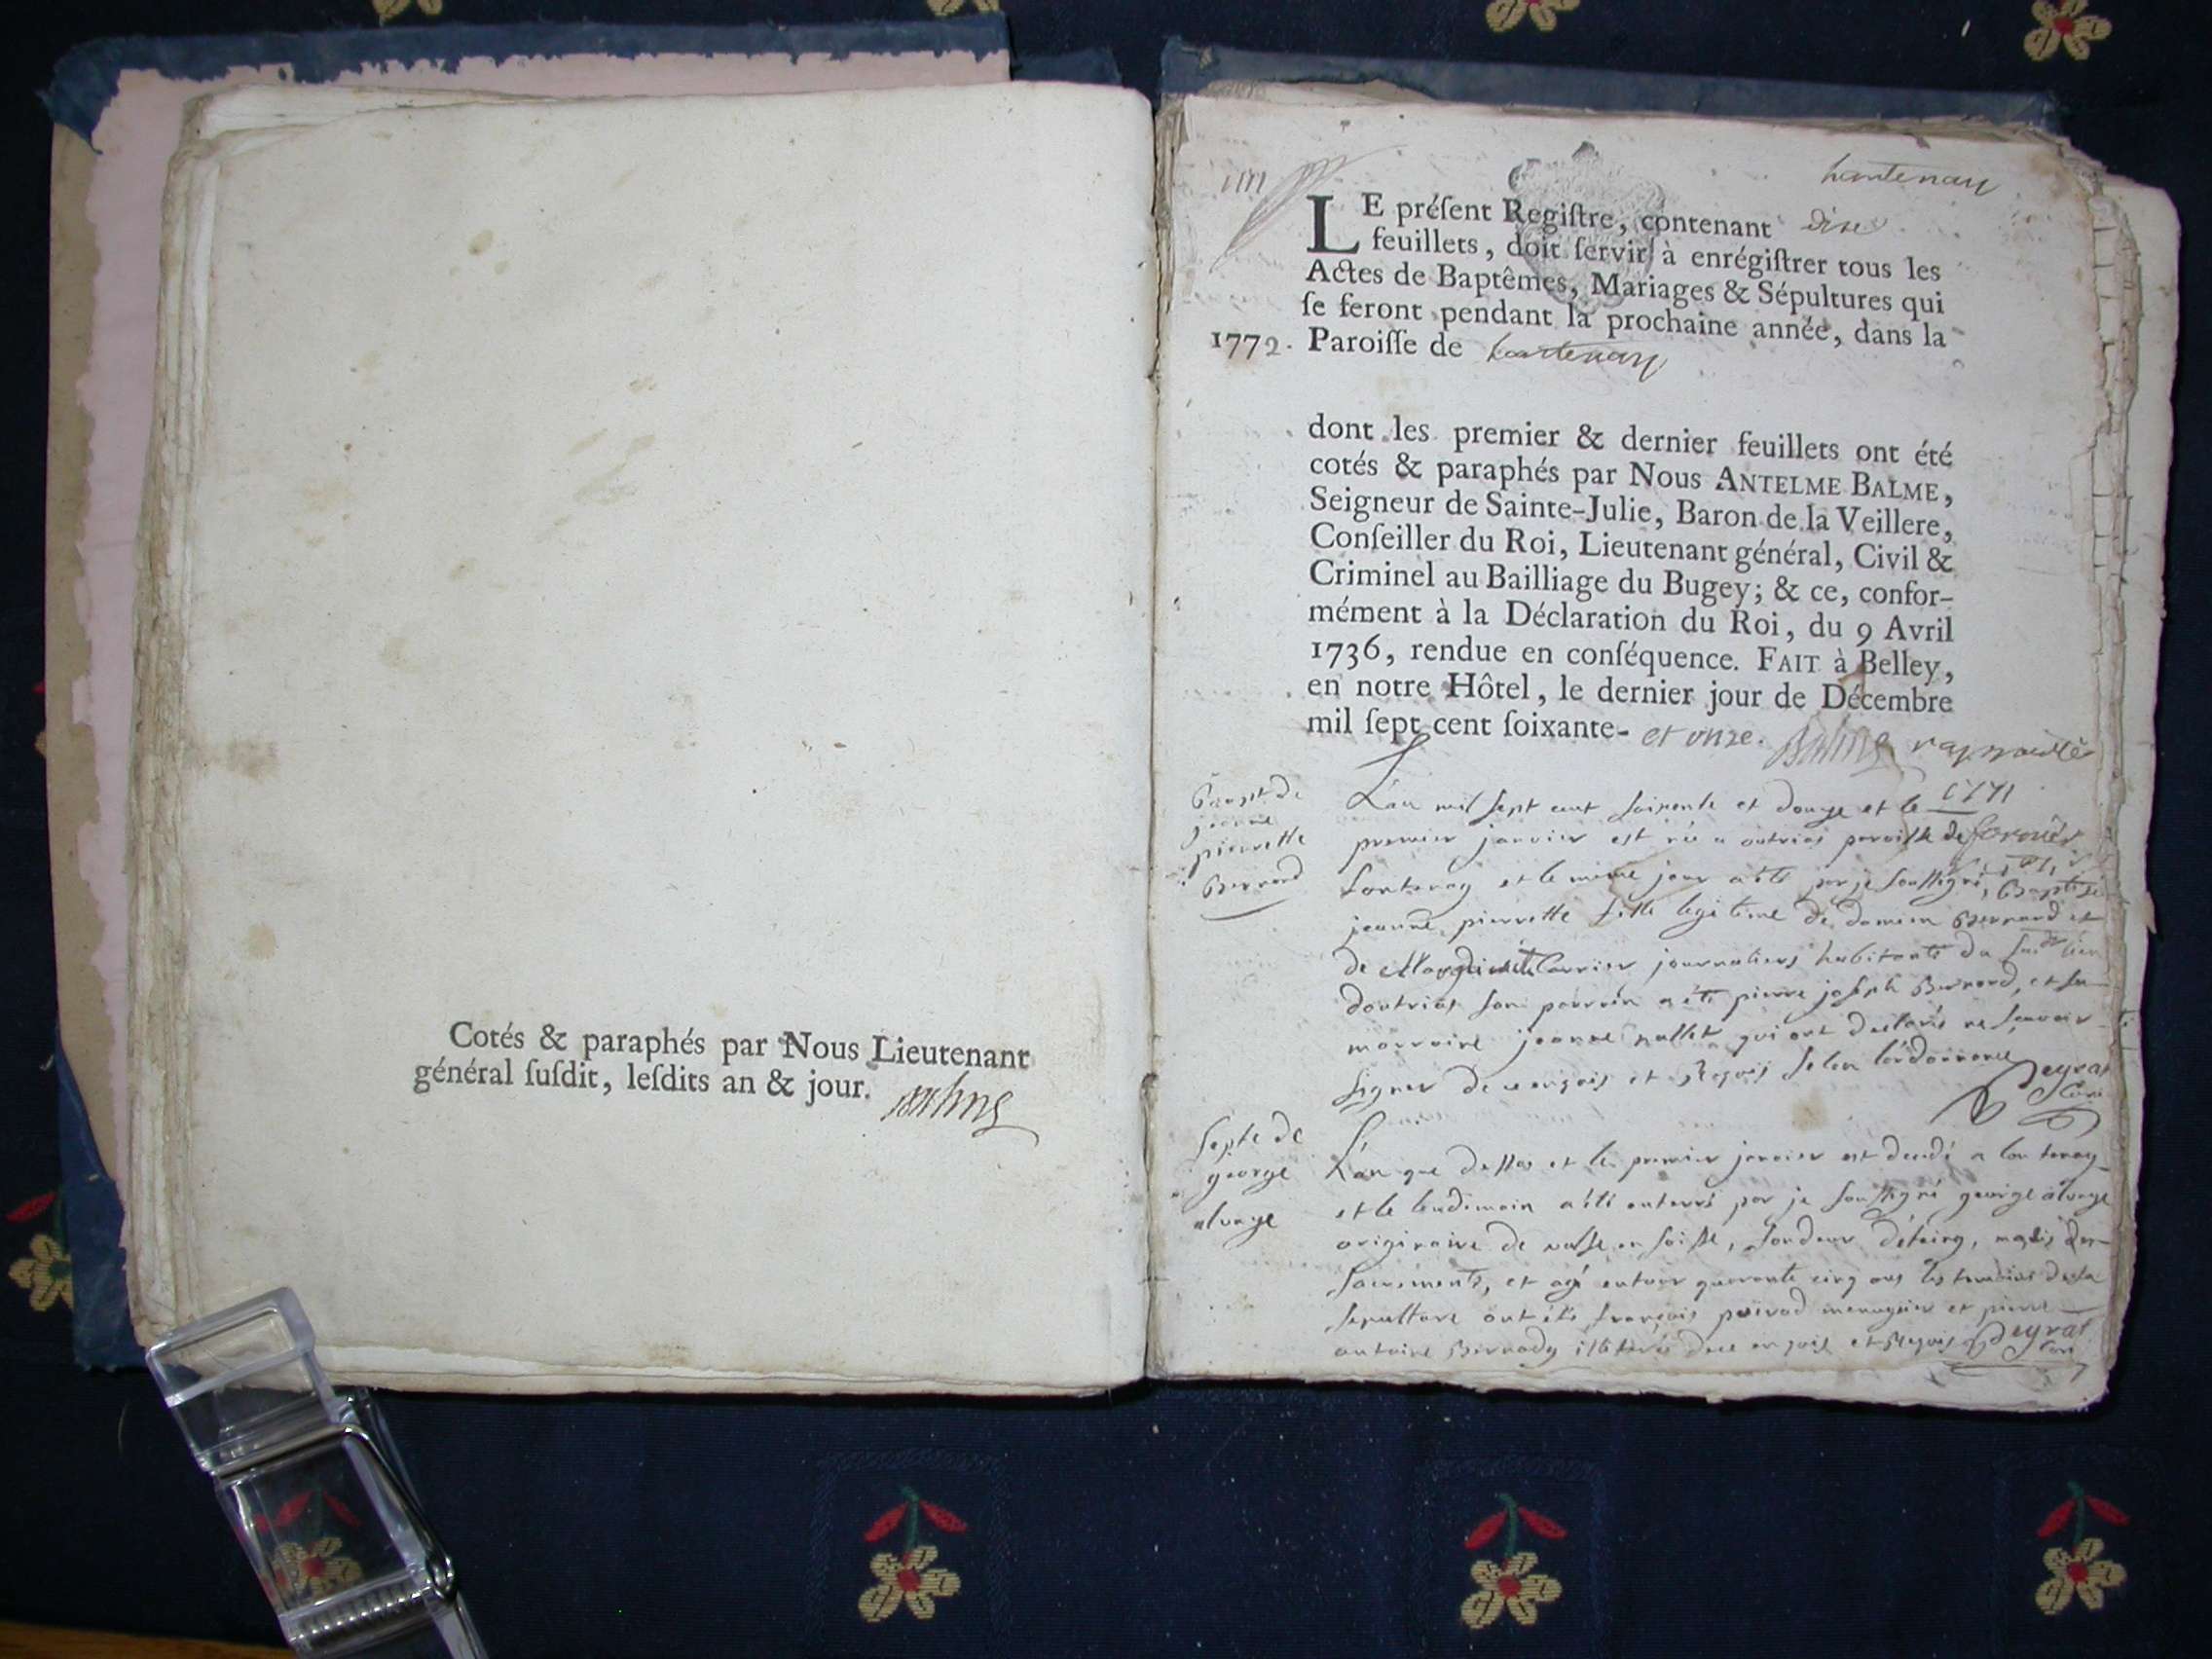 Cotés & paraphés par Nous Lieutenant
général ſuſdit, leſdits an & jour.
hantenay
LE préſent Regiſtre, contenant dixe
feuillets, doit ſervir à enrégiſtrer tous les
Actes de Baptêmes, Mariages & Sépultures qui
ſe feront pendant la prochaine année, dans la
1772. Paroiſſe de hantenay
dont les premier & dernier feuillets ont été
cotés & paraphés par Nous ANTELME BALME,
Seigneur de Sainte-Julie, Baron de la Veillere,
Conſeiller du Roi, Lieutenant général, Civil &
Criminel au Bailliage du Bugey; & ce, confor-
mément à la Déclaration du Roi, du 9 Avril
1736, rendue en conſéquence. FAIT à Belley,
en notre Hôtel, le dernier jour de Décembre
mil ſept cent ſoixante- et onze. Balme
Bapt de
jeanne
pierrette
Bernard
L'an mil sept cent soixente et douze et le
premier janvier est née a outrias paroisse de
lantenay et le même jour a été par je soussigné Baptisée
jeanne pierrette fille legitime de damien Bernard et
de Marguerite Carrier journaliers habitants du susdt lieu
doutrias son parrain a été pierre joseph Bernard, et sa
marraine jeanne nallet qui ont declarés ne sçavoir
signer de ce enquis et requis selon l'ordonnance Peyrat
Curé
Septe de
george
alvage
L'an que dessus et le premier janvier est decedé a lantenay
et le lendemain a été enterré par je soussigné george alvage
originaire de en soisse, fondeur d'étaing, des
sacrements, et agé entour quarente cinq ans les temoins de la
sepulture ont été françois et pierre
antoine Bernady de ce enquis et requis Peyrat